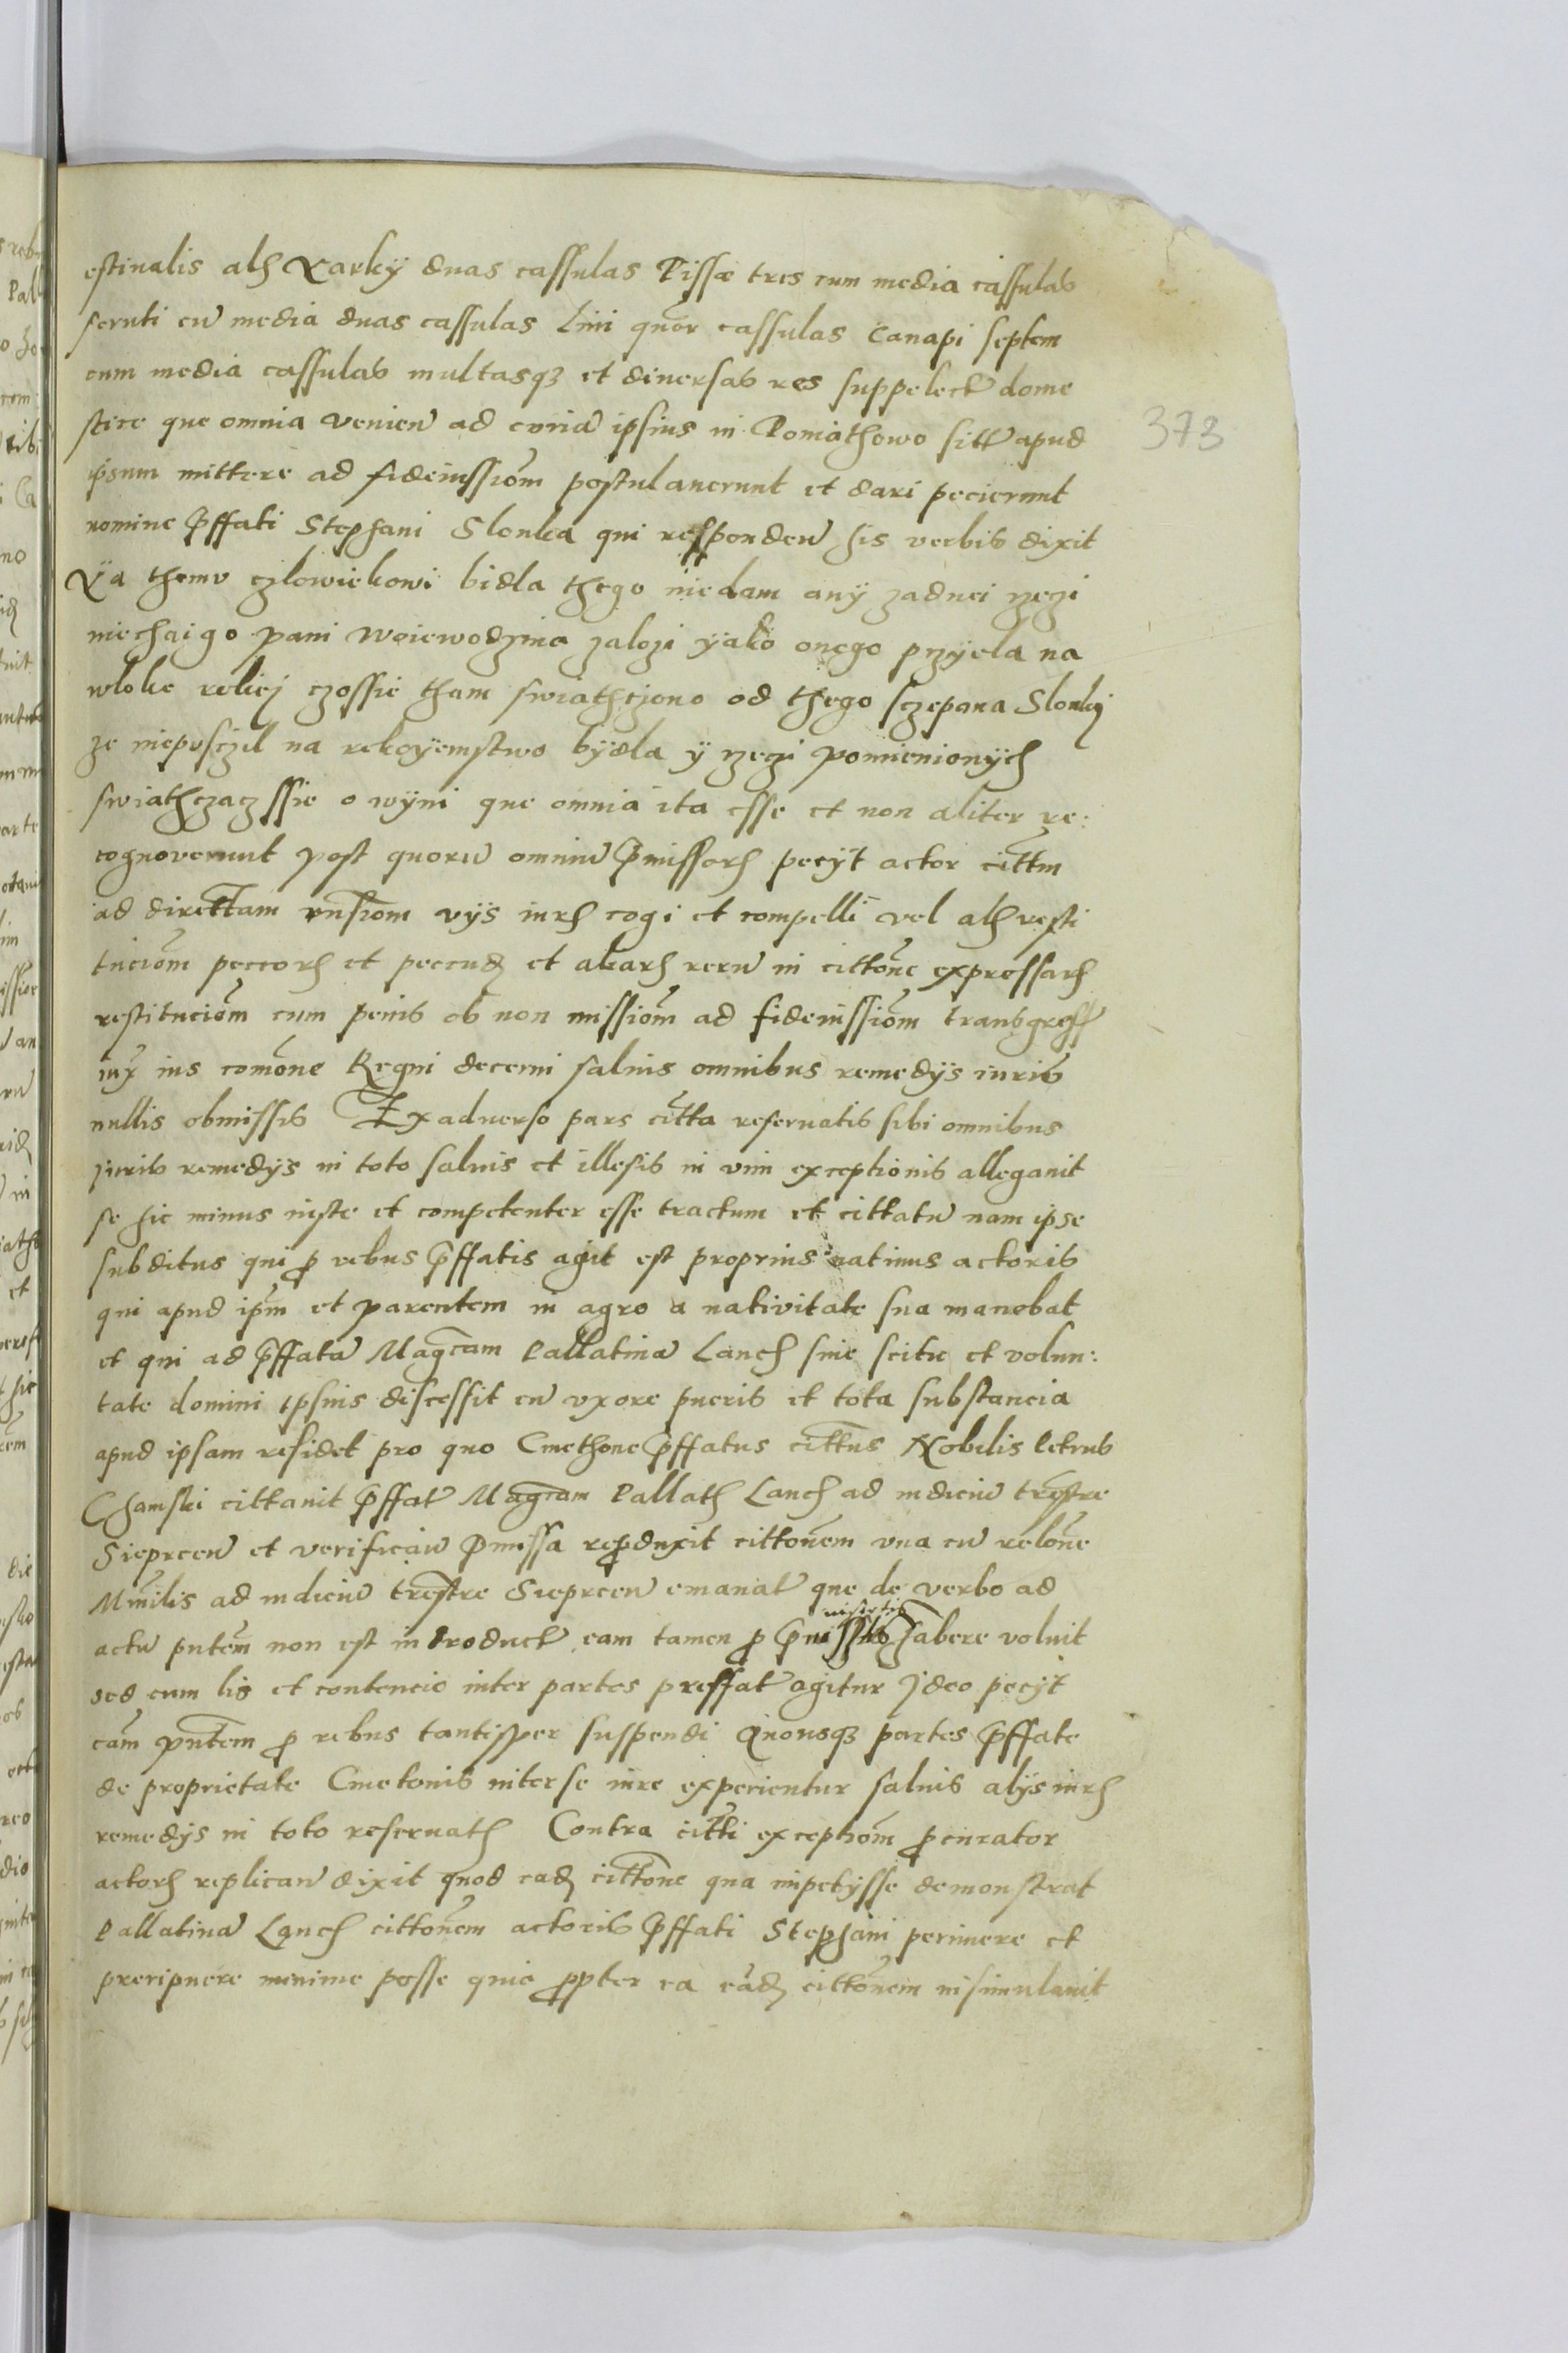 estiualis alς Yarkÿ duas cassulas Pissæ tres cum media cassulas
seruti cū media duas cassulas Lini quor cassulas Canapi septem
cum media cassulas multasqȝ et diuersas res suppelect dome
stice que omnia venien ad curiā ipsius in Poniathowo sitt apud
ipsum mittere ad fideiussiom postulauerunt et dari pecierunt
nomine pffati Stephani Slonka qui responden his verbis dixit
Ÿa themu czlowiekowi bidla thego niedam anÿ zadnei rzeczi
niechaigo pani woiewodzina zalozi ÿako onego przÿela na
wloke czossie tham swiathczono od thego sczepana Slonkÿ
ze niepusczil na rekoÿemstwo bÿdla ÿ rzeczi pomienionÿch
swiathczacz ssie o wÿni que omnia ita esse et non aliter re:
cognoverunt post quorū omniū pmissorς pecÿt actor cittm
ad direttam rnsiom vÿs iurς cogi et compelli vel alς resti
tuciom peccorς et peccudς et aliarς rerū in cittone expressarς
restituciom cum penis ob non missiom ad fideiussiom transgress
iux ius comone Regni decerni saluis omnibus remedÿs iuris
nullis obmissis Ex aduerso pars citta reseruatis sibi omnibus
Juris remedÿs in toto saluis et illesis in vim exceptionis allegauit
se hic minus iuste et competenter esse tractum et cittatū nam ipse
subditus qui p rebus pffatis agit est proprius natiuus actoris
qui apud ipm et parentem in agro a nativitate sua manebat
et qui ad pffatā Magcam Pallatinā Lancς sine scitu et volun:
tate domini ipsius discessit cū vxore pueris et tota substancia
apud ipsam residet pro quo Cmethone pffatus cittus Nobilis Petrus
Chamski cittauit pffat Magcam Pallatς Lancς ad iudiciū trestre
Sieprcen et verifican pmissa reproduxit cittonem vna cū relone
Mnilis ad iudiciū trestre Sieprcen emanat que de verbo ad
actū pntem non est introduct eam tamen p insertis habere voluit
sed cum lis et contencio inter partes preffat agitur Jdeo pecÿt
cam pntem p rebus tantisper suspendi Quousqȝ partes pffate
de proprietate Cmetonis inter se iure experientur saluis alÿs iurς
remedÿs in toto reseruatς Contra citti exceptiom pcurator
actorς replican dixit quod eadς cittone qua impetÿsse demonstrat
Pallatinā Lancς cittonem actoris pffati Stephani perimere et
preripuere minime posse quia ppter ea eadς cittonem insimulauit
373